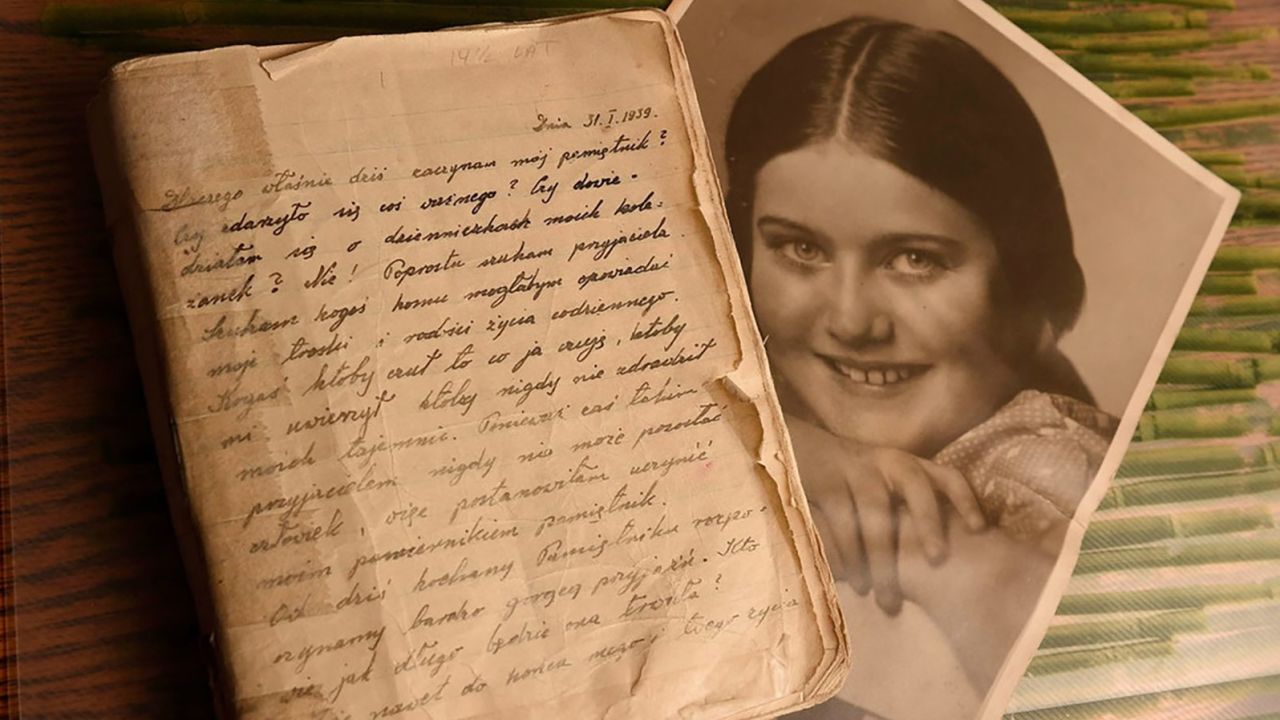 14 ½ LAT
1
Dnia 31.I.1939.
Dlaczego właśnie dziś zaczynam mój pamiętnik?
Czy zdarzyło się coś ważnego? Czy dowie-
działam się o dzienniczkach moich kole-
żanek? Nie! Poprostu szukam przyjaciela.
Szukam kogoś komu mogłabym opowiadać
moje troski i radości życia codziennego.
Kogoś ktoby czuł to co ja czuję, ktoby
mi uwierzył ktoby nigdy nie zdradził
moich tajemnic. Ponieważ zaś takim
przyjacielem nigdy nie może pozostać
człowiek, więc postanowiłam uczynić
moim powiernikiem pamiętnik.
Od dziś kochany Pamiętniku rozpo-
czynamy bardzo gorącą przyjaźń. Kto
wie jak długo będzie ona trwała?
nawet do końca mego i twego życia